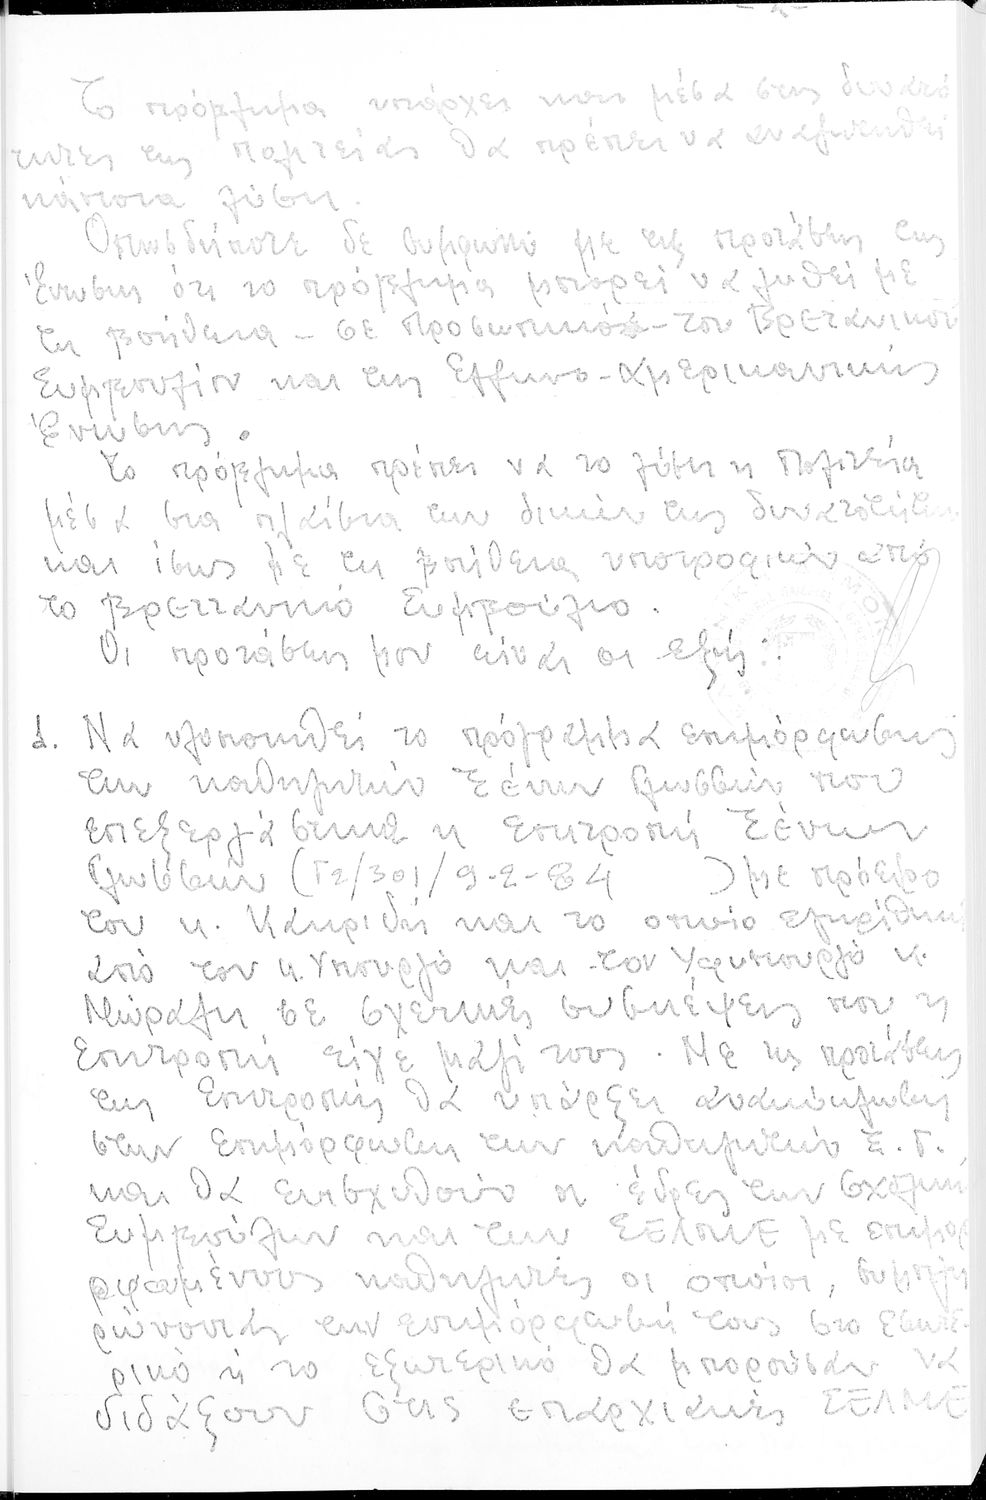 - 2 -
Το πρόβλημα υπάρχει και μέσα στις δυνατό
τητες της Πολιτείας θα πρέπει να αναζητηθεί
κάποια λύση.
Οπωσδήποτε δε συμφωνώ με τις προτάσεις της
Ένωσης ότι το πρόβλημα μπορεί να λυθεί με
τη βοήθεια - σε προσωπικό - του Βρετανικού
Συμβουλίου και της Ελληνο-αμερικανικής
Ένωσης.
Το πρόβλημα πρέπει να το λύσει η Πολιτεία
μέσα στα πλαίσια των δικών της δυνατοτήτων
και ίσως με τη βοήθεια υποτροφιών από
το Βρεττανικό Συμβούλιο.
Οι προτάσεις μου είναι οι εξής:
1. Να υλοποιηθεί το πρόγραμμα επιμόρφωσης
των καθηγητών Ξένων Γλωσσών που
επεξεργάστηκε η Επιτροπή Ξένων
Γλωσσών (Γ2/301/9-2-84 ) με πρόεδρο
τον κ. Κακριδή και το οποίο εγκρίθηκε
από τον κ. Υπουργό και τον Υφυπουργό κ.
Μώραλη σε σχετικές συσκέψεις που η
Επιτροπή είχε μαζί τους. Με τις προτάσεις
της Επιτροπής θα υπάρξει ανακύκλωση
στην Επιμόρφωση των καθηγητών Ξ.Γ.
και θα ενισχυθούν οι έδρες των Σχολικών
Συμβούλων και των ΣΕΛΜΕ με επιμορ
φωμένους καθηγητές οι οποίοι, συμπλη
ρώνοντας την επιμόρφωσή τους στο εσωτε-
ρικό ή το εξωτερικό θα μπορούσαν να
διδάξουν στις επαρχιακές ΣΕΛΜΕ